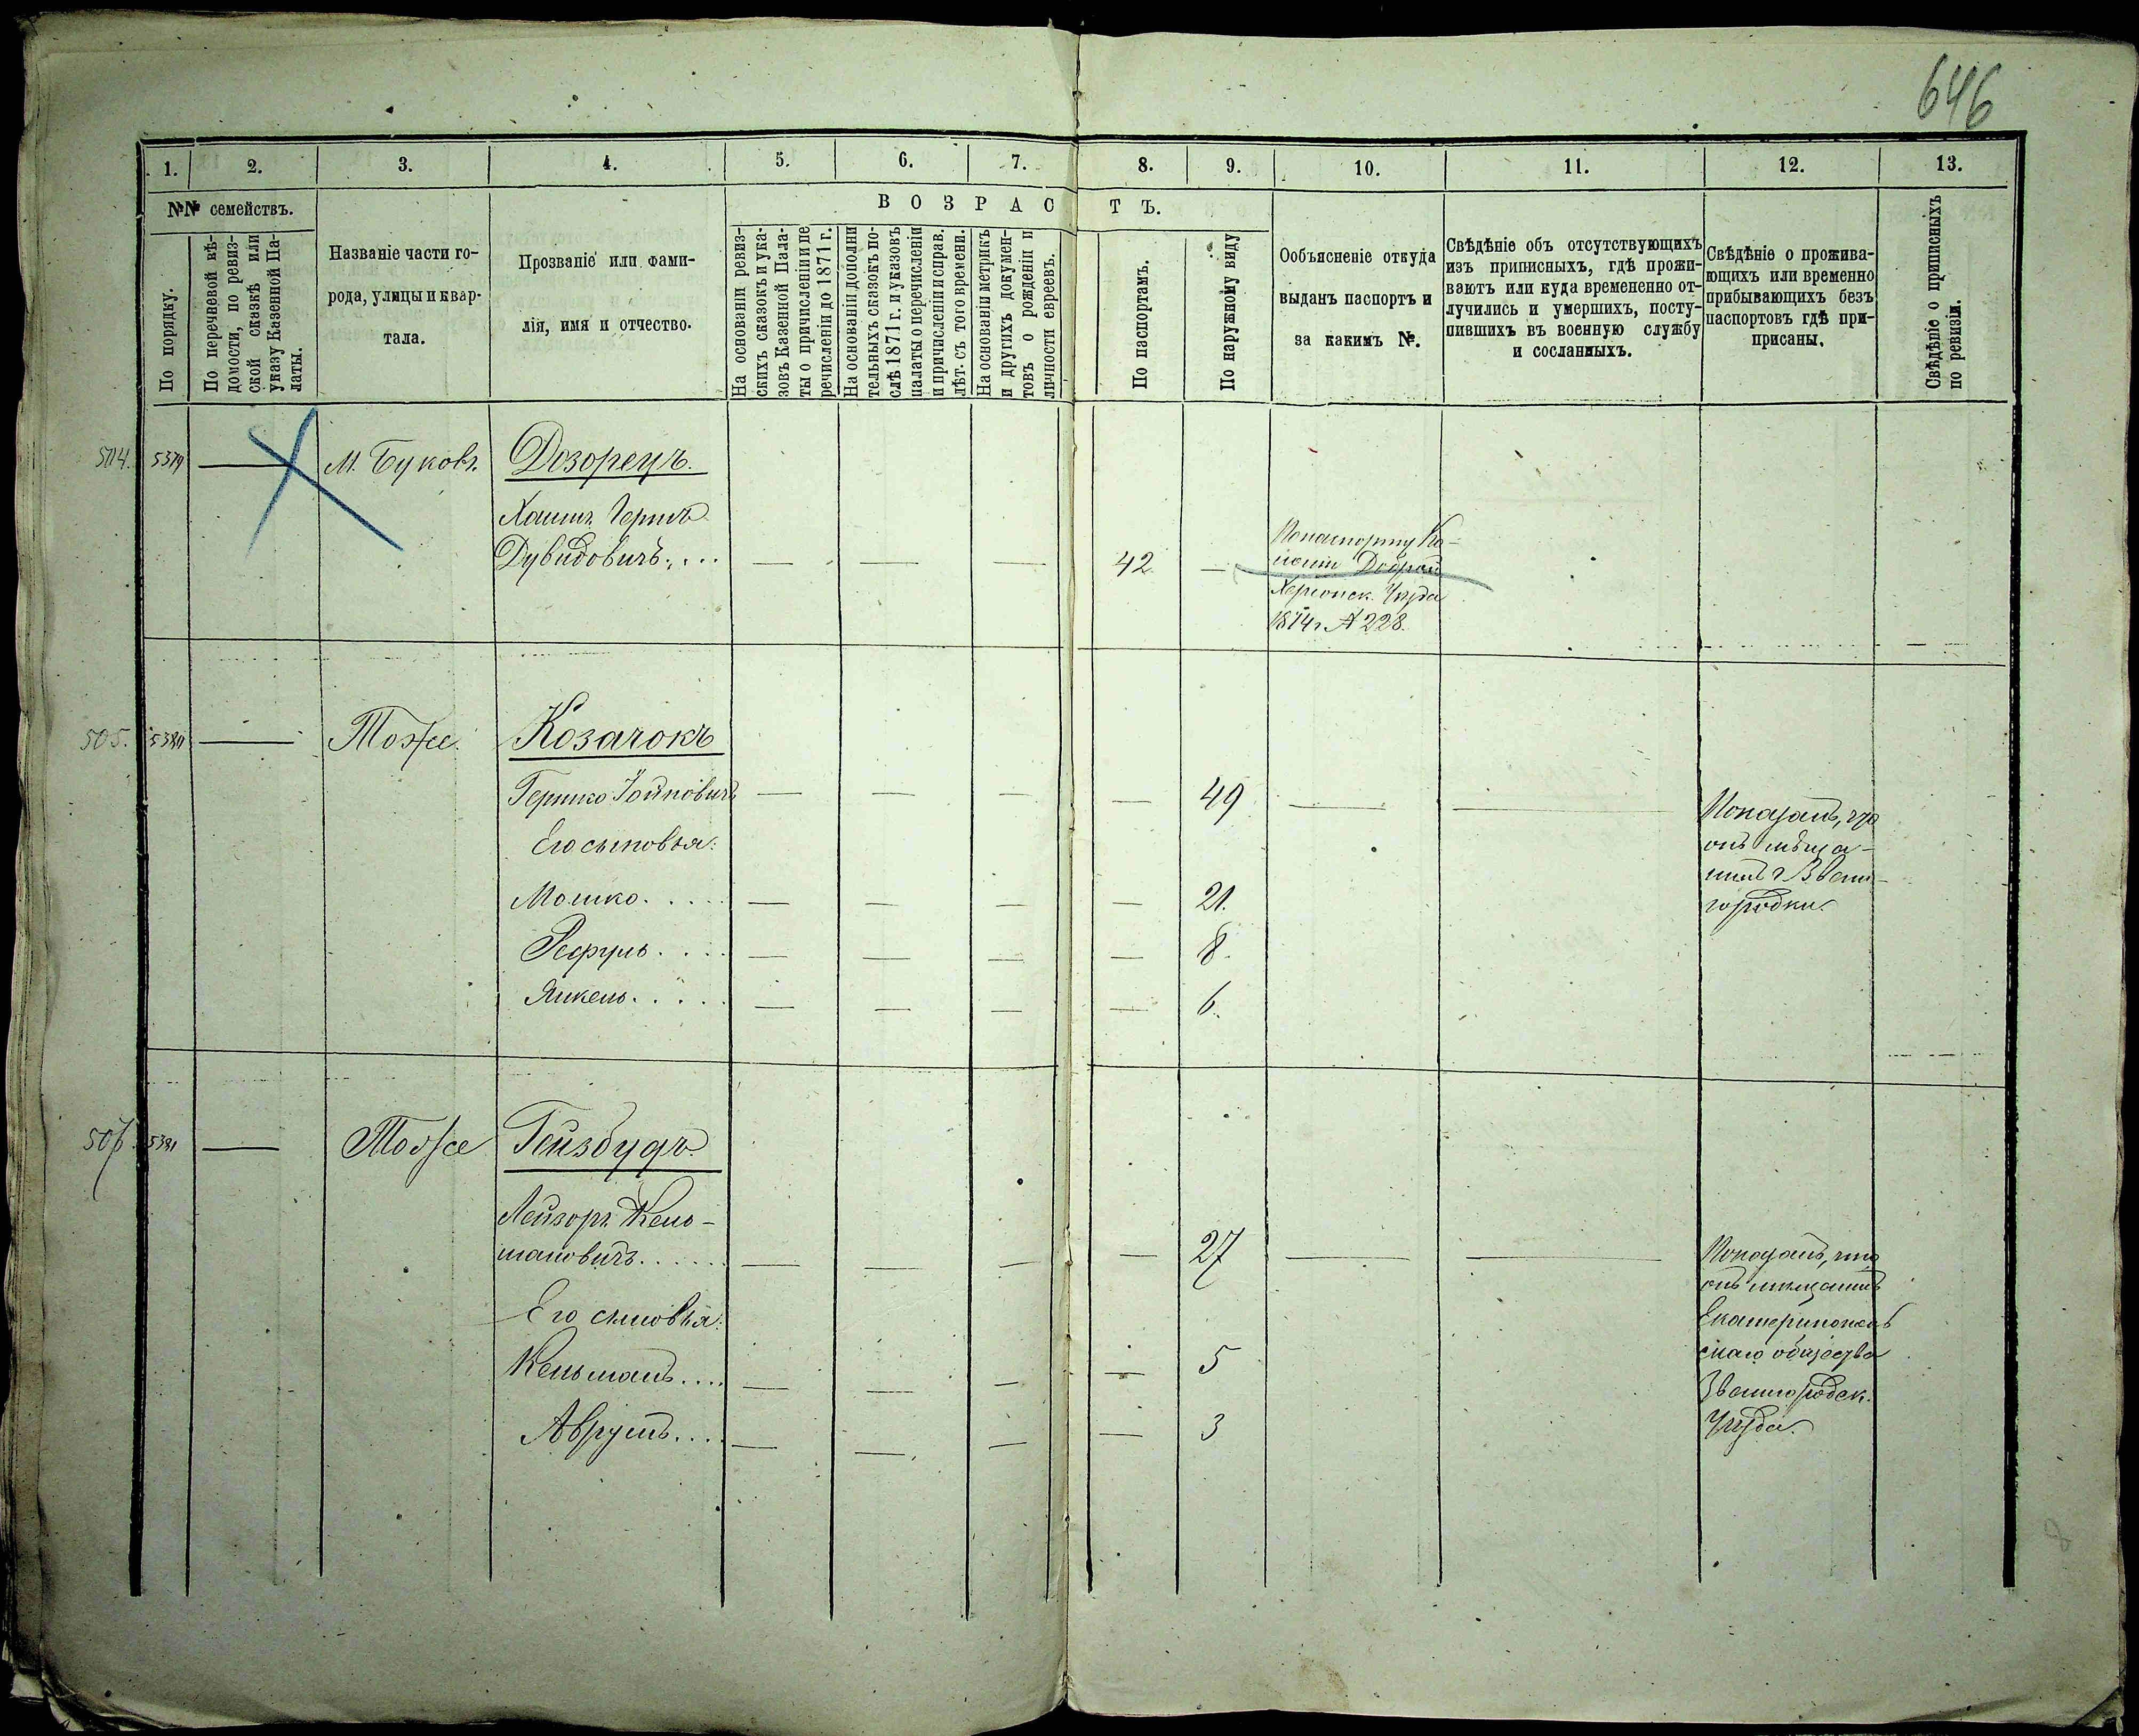 646
1. 2. 3. 4. 5. 6. 7. 8. 9. 10. 11. 12. 13.
№№ семействъ.
По порядку.
По перечневой вѣ-
домости, по ревиз-
ской сказкѣ или
указу Казенной Па-
латы.
Названіе части го-
рода, улицы и квар-
тала.
Прозваніе или фами-
лія, имя и отчество.
ВОЗРАСТЪ.
На основаніи ревиз-
скихъ сказокъ и ука-
зовъ Казенной Пала-
ты о причисленіи и пе
речисленіи до 1871 г.
На основаніи дополни
тельныхъ сказокъ по-
слѣ 1871 г. и указовъ
палаты о перечисленіи
и причисленіи и справ.
лѣт. съ того времени.
На основаніи метрикъ
и другихъ докумен-
товъ о рожденіи и
личности евреевъ.
По паспортамъ.
По наружному виду
Ообъясненіе откуда
выданъ паспортъ и
за какимъ №.
Свѣдѣніе объ отсутствующихъ
изъ приписныхъ, гдѣ прожи-
ваютъ или куда временно от-
лучились и умершихъ, посту-
пившихъ въ военную службу
и сосланныхъ.
Свѣдѣніе о прожива-
ющихъ или временно
прибывающихъ безъ
паспортовъ гдѣ при-
писаны.
Свѣдѣніе о приписныхъ
по ревизіи.
5379 — М. Буковъ. Дозорецъ.
Хаимъ Гершъ
Дувидовичъ.... — — — 42 —
Колоніи Доброй
Херсонск. Уѣзда
1874 г. № 228.
505. 5380 — Тоже. Козачокъ
Гершко Іойновичъ — — — — 49 — —
Его сыновья:
Мошко..... — — — — 21.
.... — — — — 8.
Янкель..... — — — — 6.
Показалъ, что
онъ мѣща-
нинъ г. Звени-
городки.
506. 5381 — Тоже Гейзбудъ.
Лейзоръ Кель-
мановичъ...... — — — — 27 — —
Его сыновья:
Кельманъ.... — — — — 5
Аврумъ.... — — — — 3
Показалъ, что
онъ мѣщанинъ
Екатеринополь
скаго общества
Звенигородск.
Уѣзда.